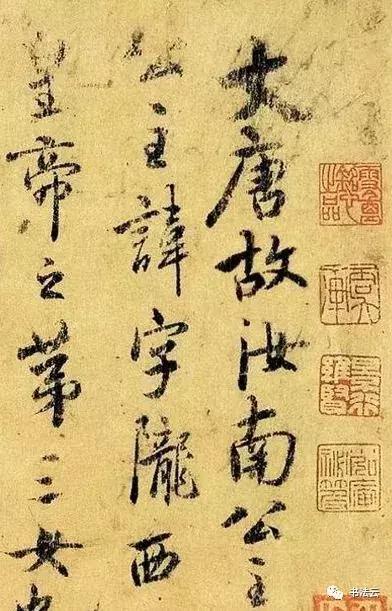 大唐故汝南公主
公主諱字隴西
皇帝之第三女
书法云